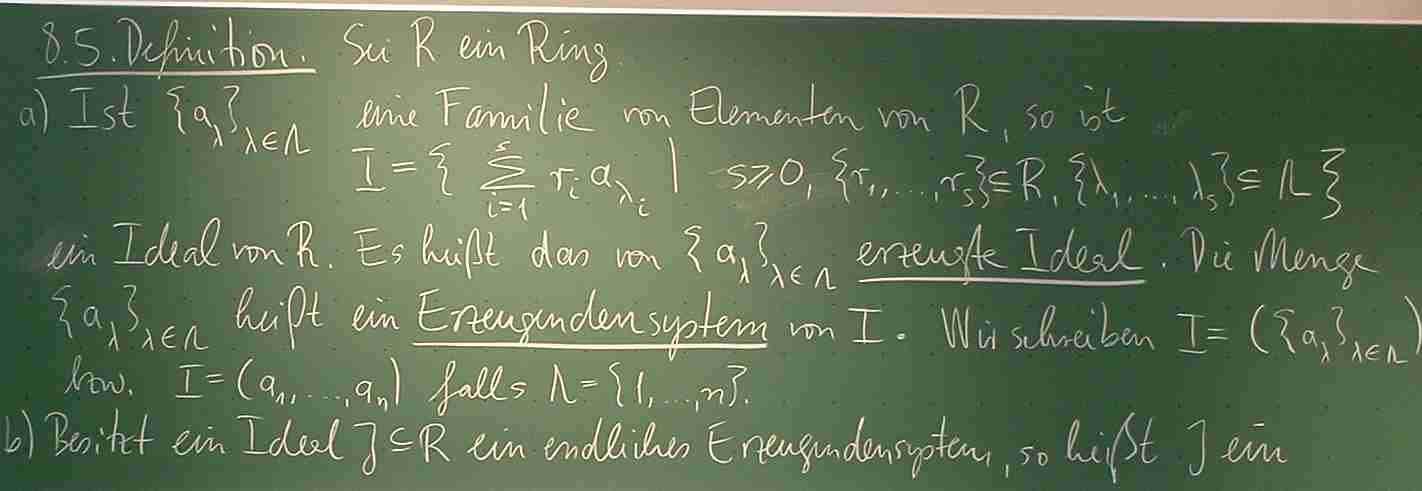 8.5. Definition. Sei R ein Ring.
a) Ist {a_λ}_{λ∈Λ} eine Familie von Elementen von R, so ist
I = { ∑_{i=1}^{s} r_i a_{λ_i} | s ≥ 0, {r_1, ..., r_s} ⊆ R, {λ_1, ..., λ_s} ⊆ Λ }
ein Ideal von R. Es heißt das von {a_λ}_{λ∈Λ} erzeugte Ideal. Die Menge
{a_λ}_{λ∈Λ} heißt ein Erzeugendensystem von I. Wir schreiben I = ({a_λ}_{λ∈Λ})
bzw. I = (a_1, ..., a_n) falls Λ = {1, ..., n}.
b) Besitzt ein Ideal J ⊆ R ein endliches Erzeugendensystem, so heißt J ein